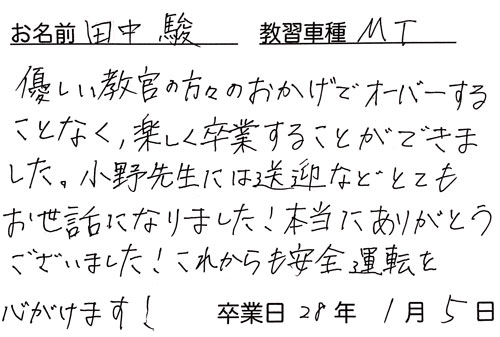 お名前 田中 駿 教習車種 MT
優しい教官の方々のおかげでオーバーする
ことなく,楽しく卒業することができま
した。小野先生には送迎などとても
お世話になりました!本当にありがとう
ございました!これからも安全運転を
心がけます! 卒業日 28年 1月 5日